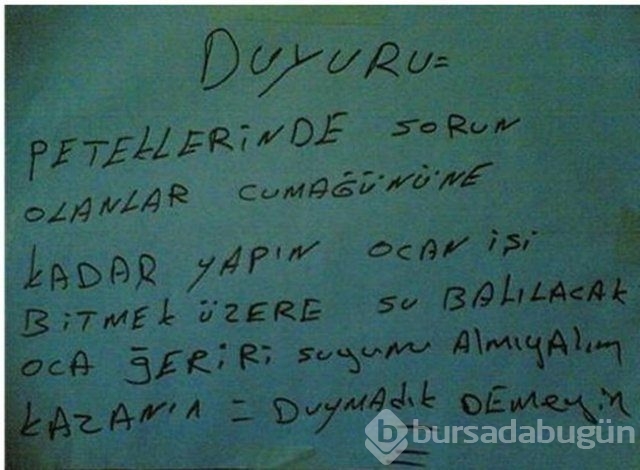 DUYURU=
PETEKLERİNDE SORUN
OLANLAR CUMAĞÜNÜNE
KADAR YAPIN OCAN İŞİ
BİTMEK ÜZERE SU BALILACAK
OCA ĞERİRİ SUYUNU ALMIYALIM
KAZANIN = DUYMADIK DEMEYİN
b bursadabugün